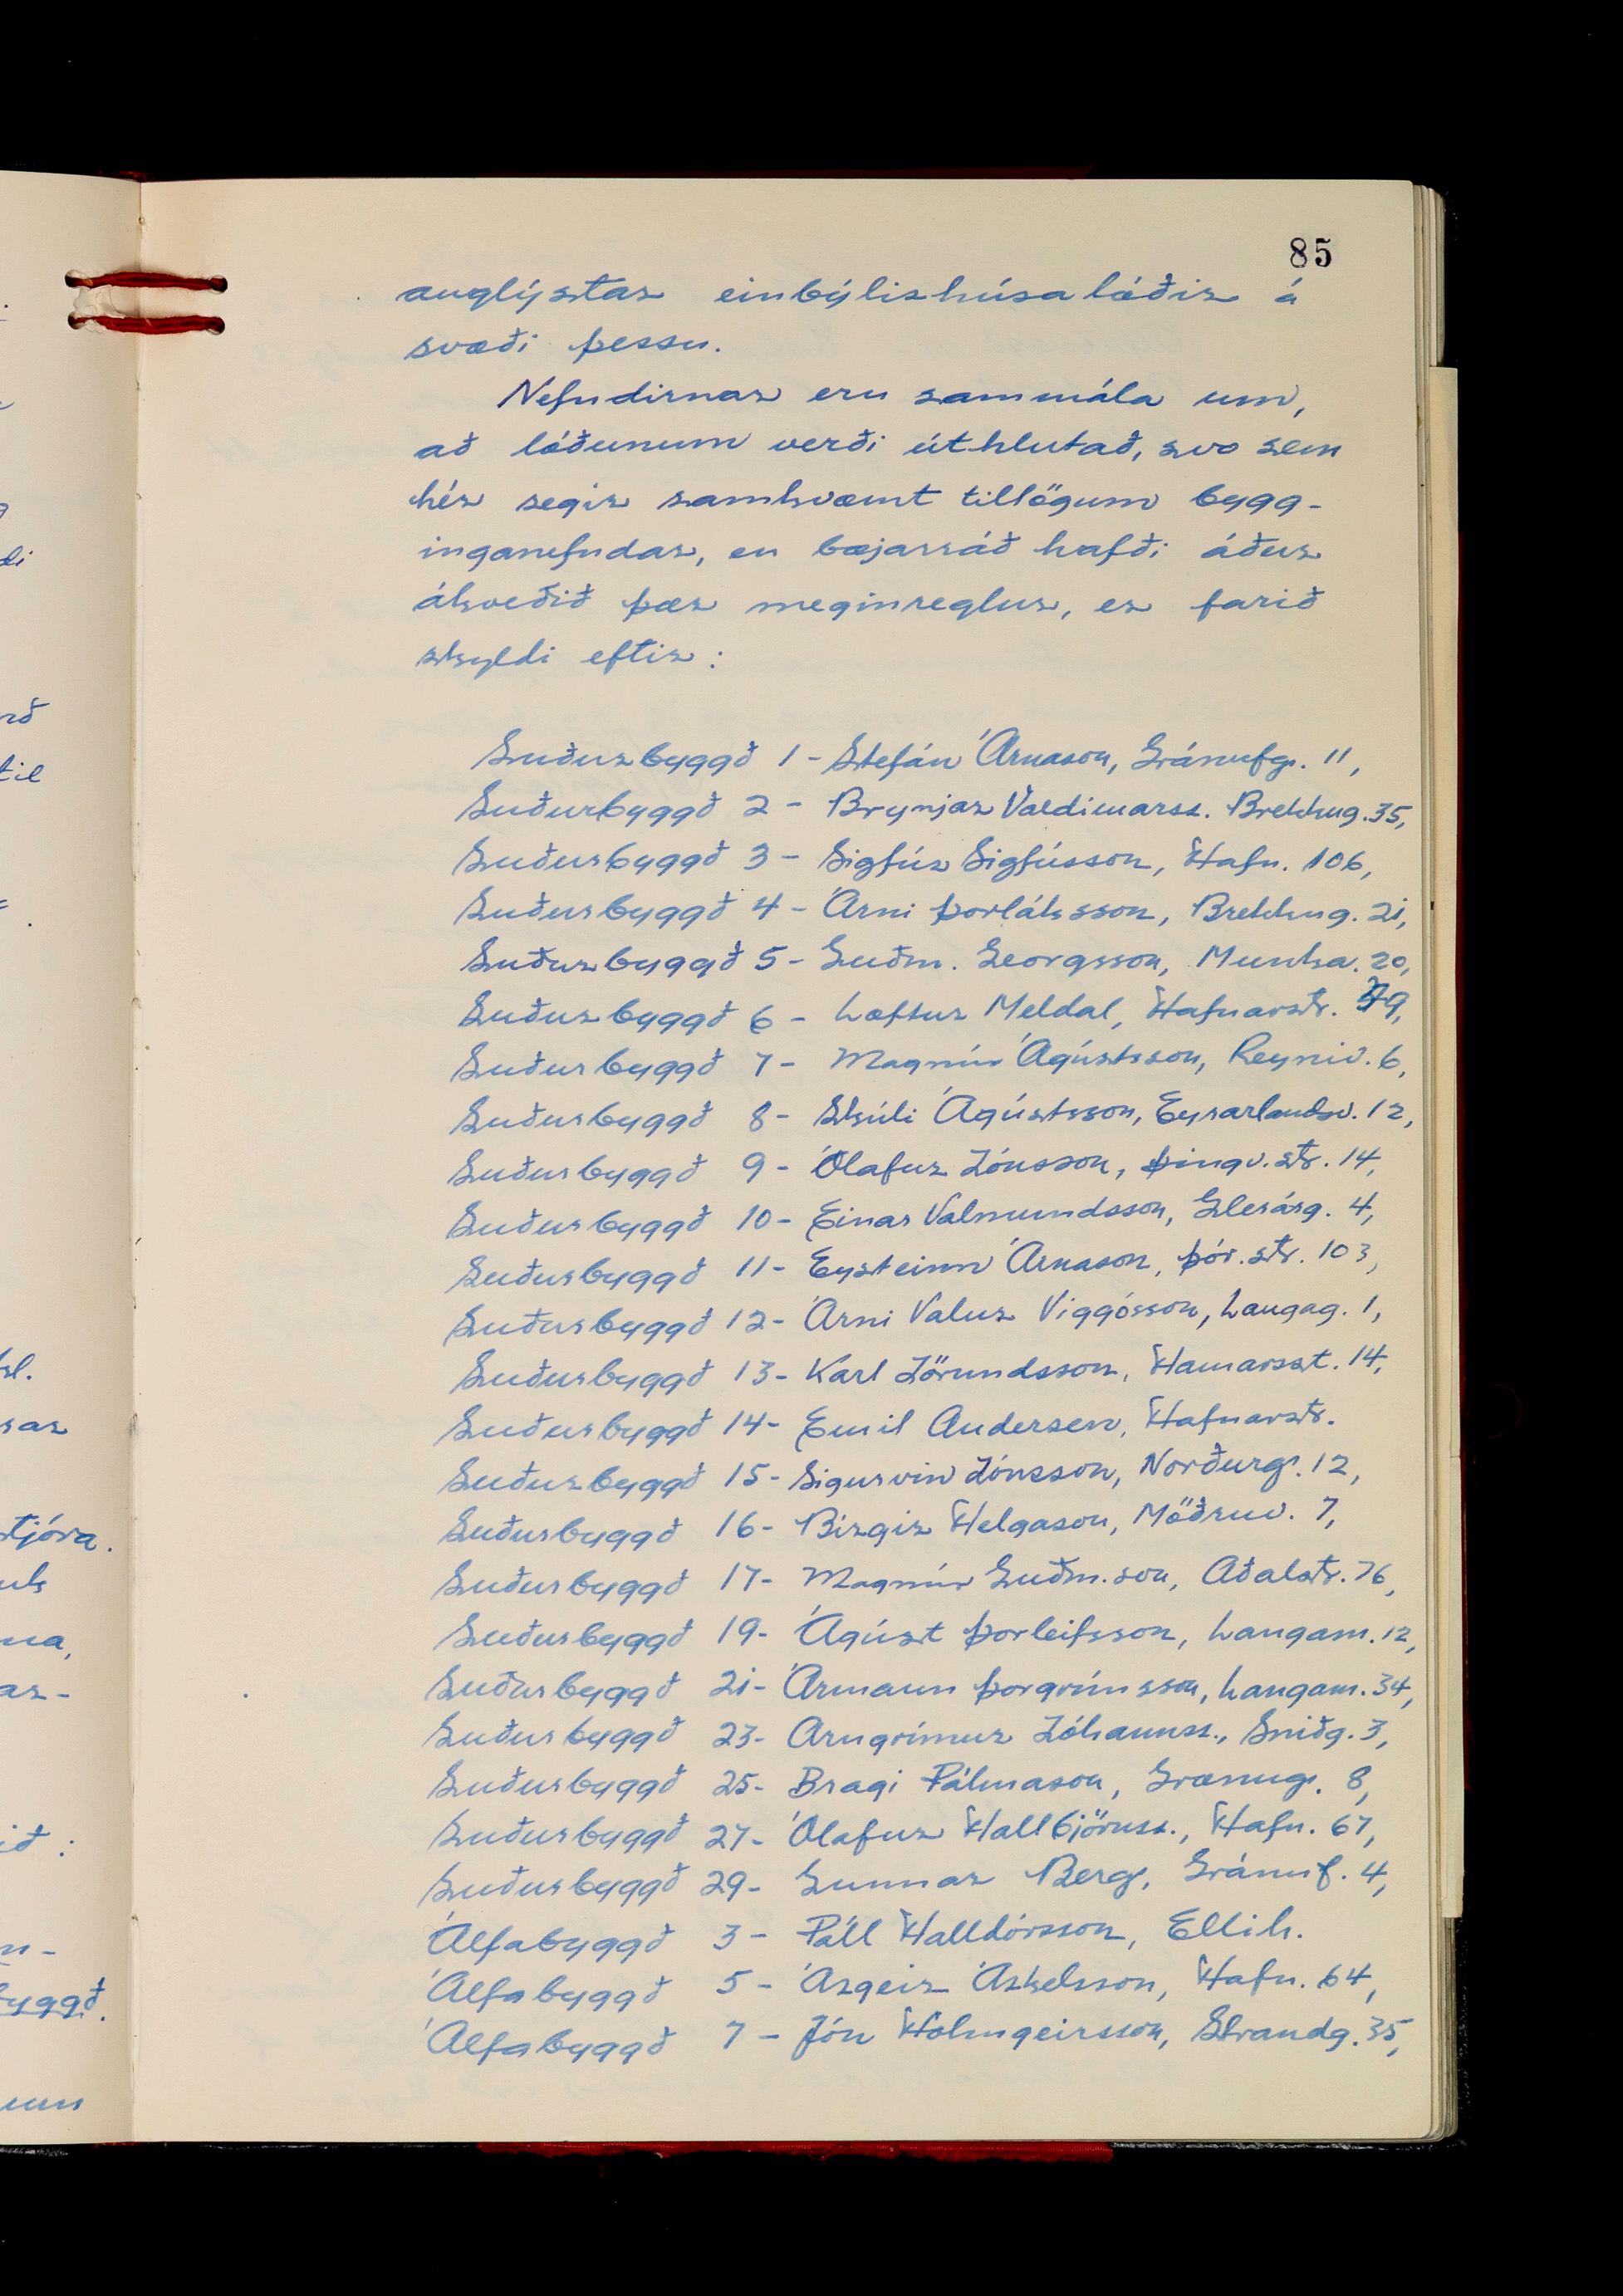 85
auglýstar einbýlishúsalóðir á
svæði þessu.
Nefndirnar eru sammála um,
að lóðunum verði úthlutað, svo sem
hér segir samkvæmt tillögum bygg-
inganefndar, en bæjarráð hafði áður
ákveðið þær meginreglur, er farið
skyldi eftir:
Suðurbyggð 1 - Stefán Árnason, Gránufg. 11,
Suðurbyggð 2 - Brynjar Valdimarss. Brekkug. 35,
Suðurbyggð 3 - Sigfús Sigfússon, Hafn. 106,
Suðurbyggð 4 - Árni Þorláksson, Brekkug. 21,
Suðurbyggð 5 - Guðm. Georgsson, Munka. 20,
Suðurbyggð 6 - Loftur Meldal, Hafnarstr. 9,
Suðurbyggð 7 - Magnús Ágústsson, Reyniv. 6,
Suðurbyggð 8 - Skúli Ágústsson, Eyrarlandsv. 12,
Suðurbyggð 9 - Ólafur Jónsson, Þingv.str. 14,
Suðurbyggð 10 - Einar Valmundsson, Glerárg. 4,
Suðurbyggð 11 - Eysteinn Árnason, Þór.str. 103,
Suðurbyggð 12 - Árni Valur Viggósson, Laugag. 1,
Suðurbyggð 13 - Karl Jörundsson, Hamarsst. 14,
Suðurbyggð 14 - Emil Andersen, Hafnarstr.
Suðurbyggð 15 - Sigurvin Jónsson, Norðurg. 12,
Suðurbyggð 16 - Birgir Helgason, Möðruv. 7,
Suðurbyggð 17 - Magnús Guðm.son, Aðalstr. 76,
Suðurbyggð 19 - Ágúst Þorleifsson, Langam. 12,
Suðurbyggð 21 - Ármann Þorgrímsson, Langam. 34,
Suðurbyggð 23 - Arngrímur Jóhannss., Sniðg. 3,
Suðurbyggð 25 - Bragi Pálmason, Grænug. 8,
Suðurbyggð 27 - Ólafur Hallbjörnss., Hafn. 67,
Suðurbyggð 29 - Gunnar Berg, Gránuf. 4,
Álfabyggð 3 - Páll Halldórsson, Ellih.
Álfabyggð 5 - Ásgeir Áskelsson, Hafn. 64,
Álfabyggð 7 - Jón Hólmgeirsson, Strandg. 35,